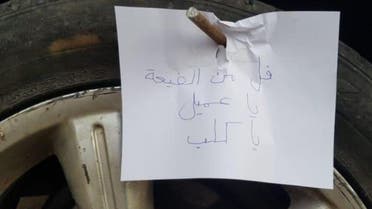 فل من الضيعة
يا عميل
يا كلب